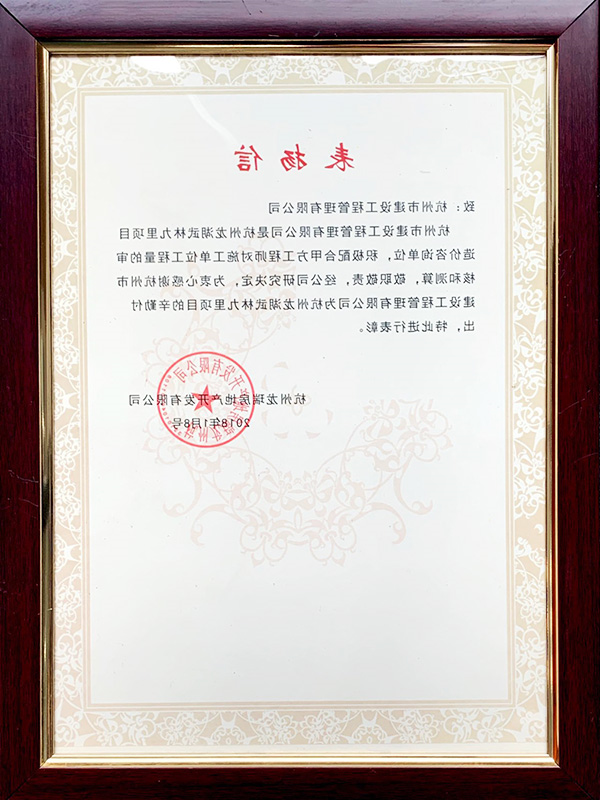 表扬信
致：杭州市建设工程管理有限公司
杭州市建设工程管理有限公司是杭州龙湖武林九里项目
造价咨询单位，积极配合甲方工程师对施工单位工程量的审
核和测算，敬职敬责，经公司研究决定，为衷心感谢杭州市
建设工程管理有限公司为杭州龙湖武林九里项目的辛勤付
出，特此进行表彰。
杭州龙瑞房地产开发有限公司
2018年1月8号
杭州龙瑞房地产开发有限公司